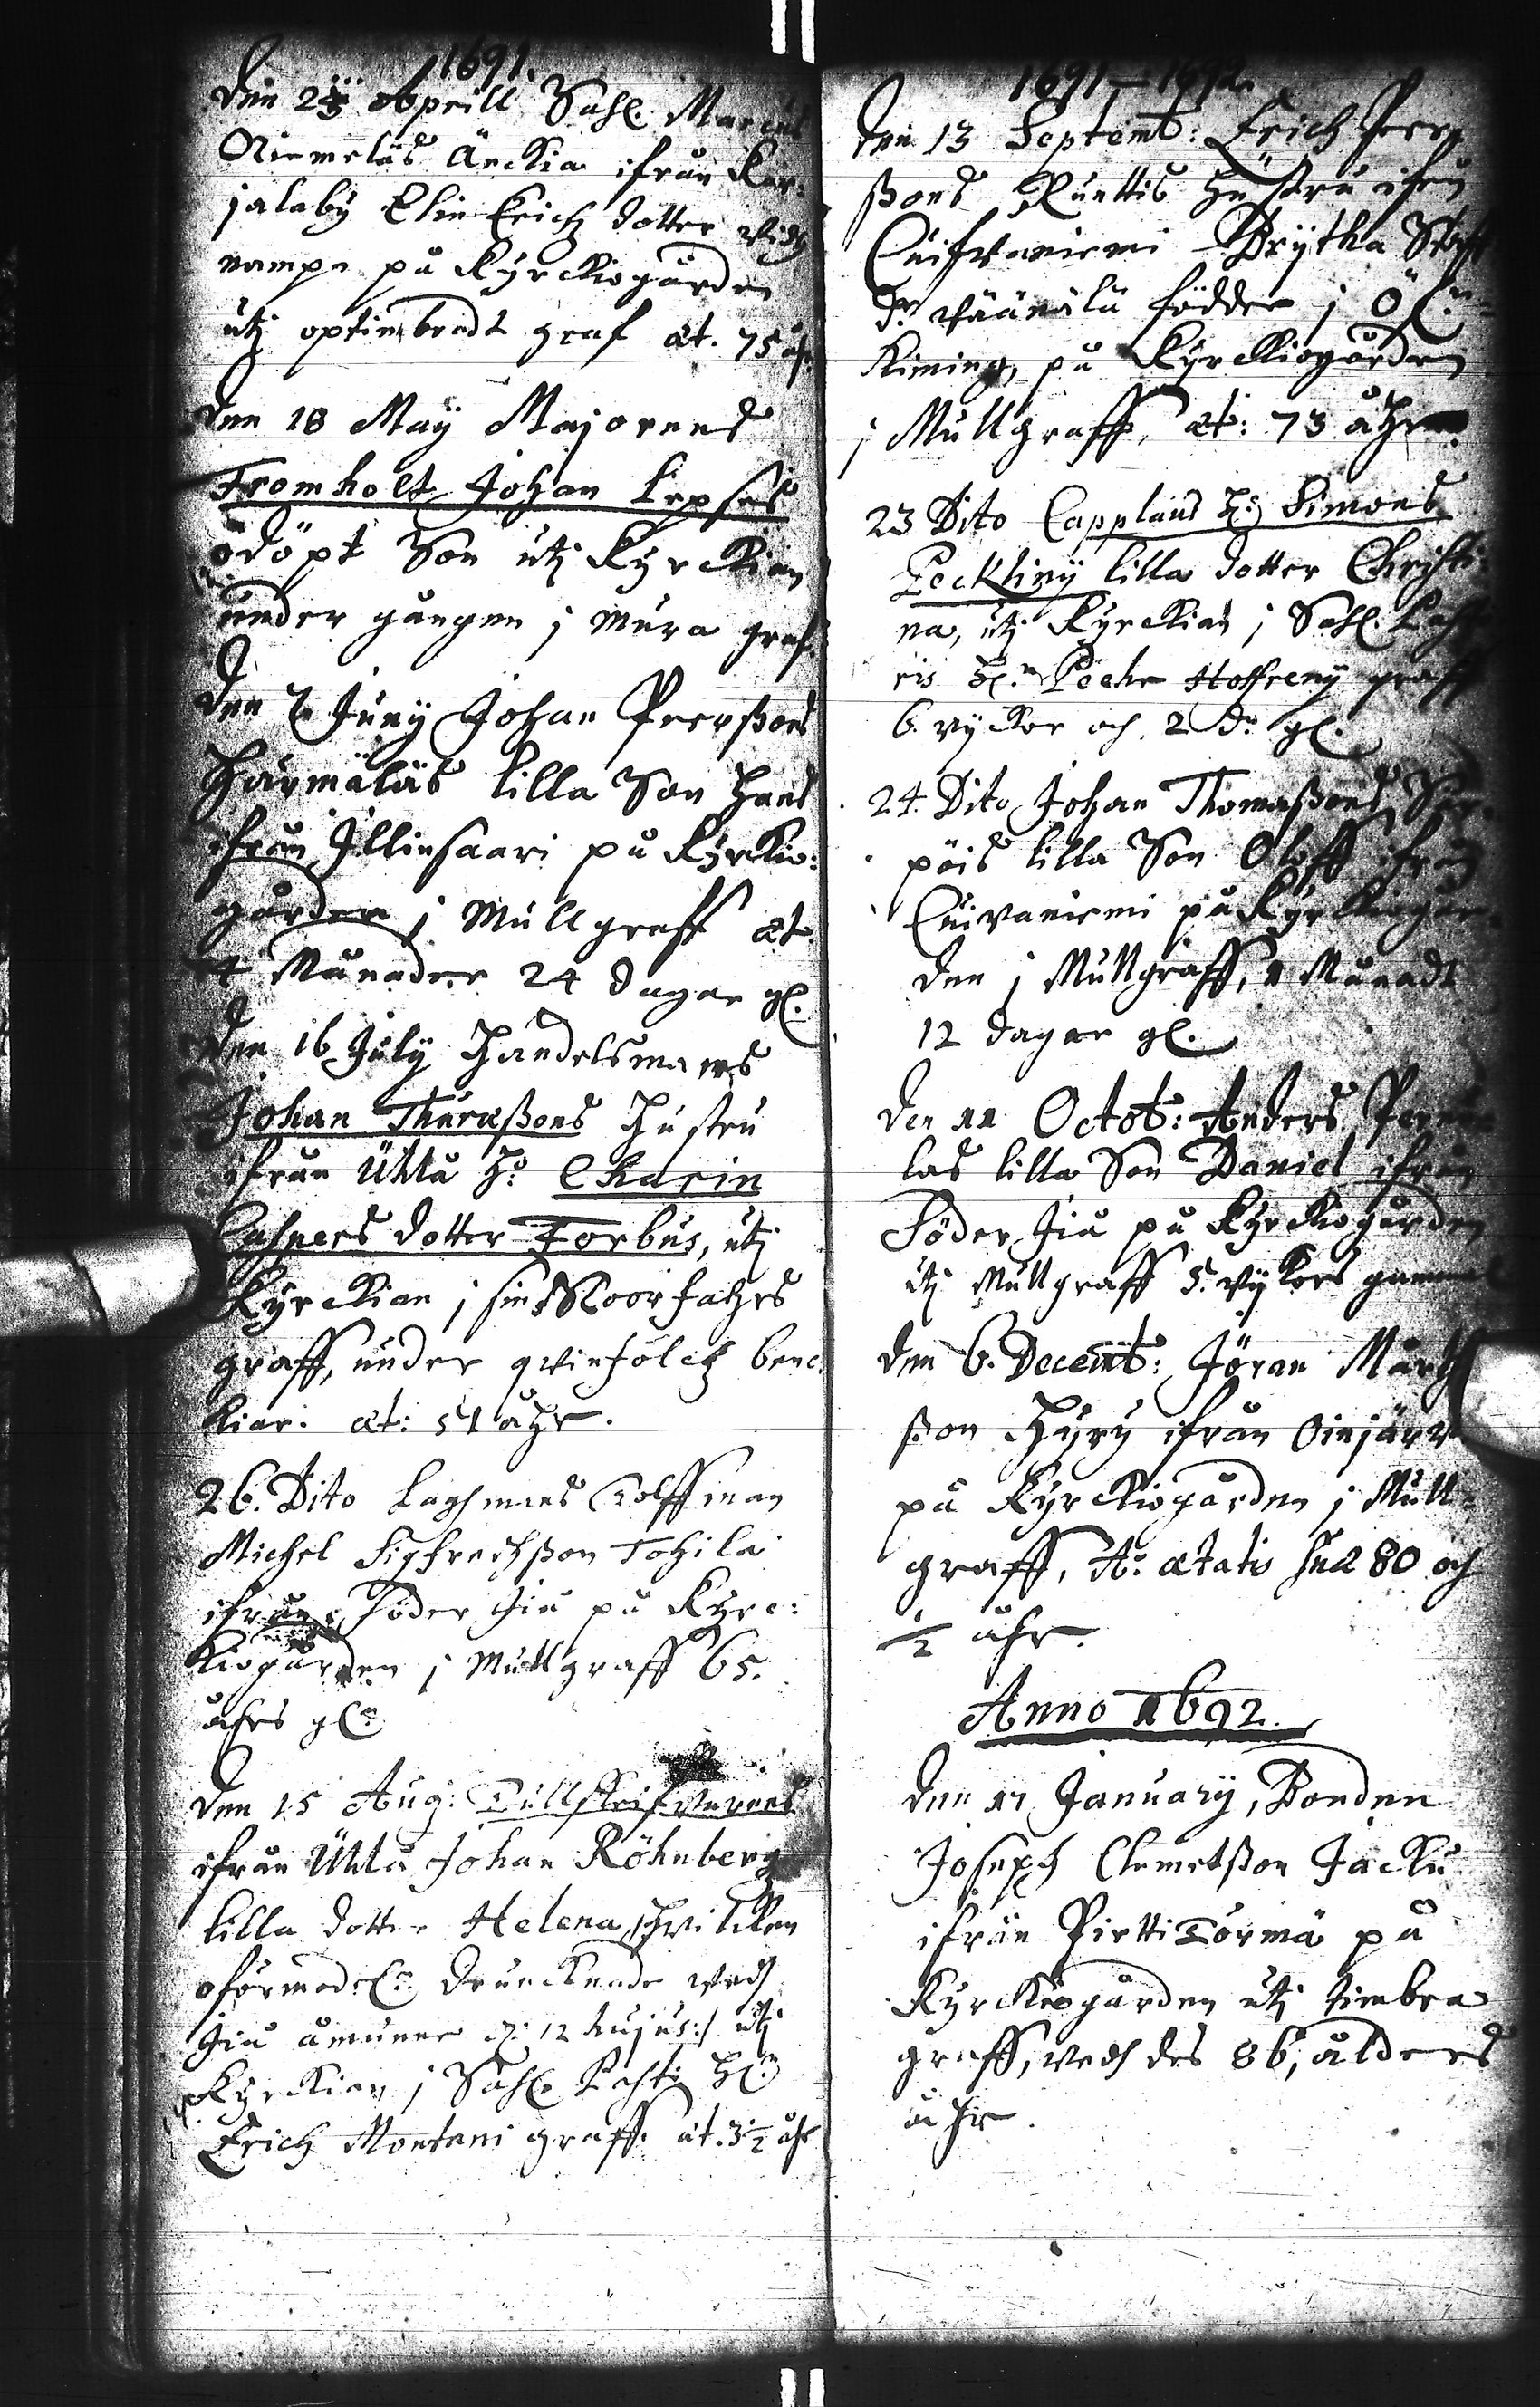 1691.
Den 23 Aprill Sahl. Marcus
Niemeläs Änckia ifrån Kar:
jalaby Elin Erichs dotter widh
nampn på Kyrckiogården
utj optimbradt graf æt. 75 åhr
Den 18 Maÿ Majorens
Fromholt Johan Lepses
odöpt Son utj Kyrckian
under gången j mura graf.
Den 7 Junÿ Johan Peersßons
Härmäläs lilla Son Hans
ifrån Illinsaari på Kyrkio:
gården j Mullgraff æt.
4 Månader 24 dagar gl.
Den 16 Julÿ Handelsmans
Johan Thuraßons Hustru
ifrån Uhlå H:o Charin
Caspers dotter Forbus, utj
Kyrckian j sin Moorfahrs
graff, under qvinfolckz benc
kiar. æt: 51 åhr.
26. Dito Laghmans Tolffman
Michel Sigfredhßon Tohila
ifrån Söder Jiå på Kyrc:
kiogården j Mullgraff 65.
åhrs gl:
Den 15 Aug: Tullskrifvarens
ifrån Uhlå Johan Röhnberg
lilla dotter Helena, hvilken
oförmodel: drunknade vedh
Jiå åmunne d: 12 hujus:/ utj
Kyrckian j Sahl. Kh
Erich Montani graff. æt. 3 1/2 åhr
1691-1692.
Den 13 Septemb: Erich Peer
ßons Ruuttis Hustru ifrån
Cuifvaniemi Brÿtha Staff
Dr. Väänälä födder j Öf
Kiming, på Kyrckiogården
j Mullgraff, æt: 73 åhr
23 Dito Capplans H: Simons
Peckliný lilla dotter Christi
na, utj Kyrckian j Sahl.
H:r Peehr Hoffreny graff
6. vyckor och 2 da: gl.
24. Dito Johan Thomaßons Sar
pöis lilla Son Oloff ifrån
Cuivaniemi på Kyrckiogår
den j Mullgraff, 1 Månadt
12 dagar gl.
Den 11 Octob: Anders
las lilla Son Daniel ifrån
Söder Jiå på Kyrckiogården
utj Mullgraff 5. vÿkors gammal
Den 6. Decemb: Jöran Mårtz
ßon Hyry ifrån Oinjärvi
på Kyrckiogården j Mull
graff, A:o ætatis suæ 80 och
1/2 åhr.
Anno 1692.
Den 17 Januarÿ, Bonden
Joseph Clemetßon Jacku
ifrån Pirttitörmä på
Kyrckiogården utj timbra
graff, vedh des 86, ålders
åhr.